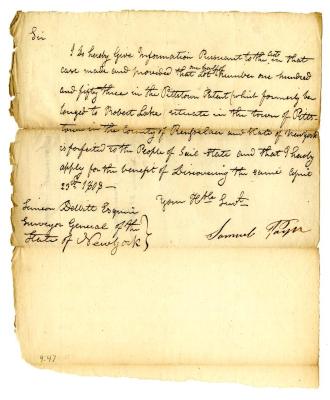 Sir
I do hereby Give Information Pursuant to the acts in that
case made and provided that one half Lot Number one hundred
and fifty three in the Pittstown Patent which formerly be
longed to Robert Lake situate in the town of Pitts-
town in the County of Rensselaer and State of New york
is forfeited to the People of Said State and that I hereby
apply for the benefit of Discovering the same April
23rd 1803 —
Your Hble Servt
Simeon DeWitt Esquire
Surveyor General of the
State of New York
Samuel
9:47